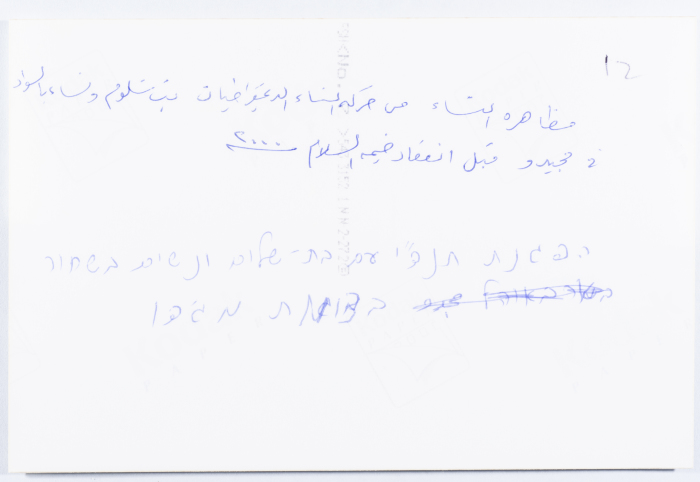 12
مظاهره النساء من حركة النساء الديمقراطيات بت شلوم ونساء بالسواد
في مجيدو قبل انعقاد خيمه السلام ٢٠٠٠
הפגנת תנד"י עם בת-שלום ונשים בשחור
בצומת מגידו